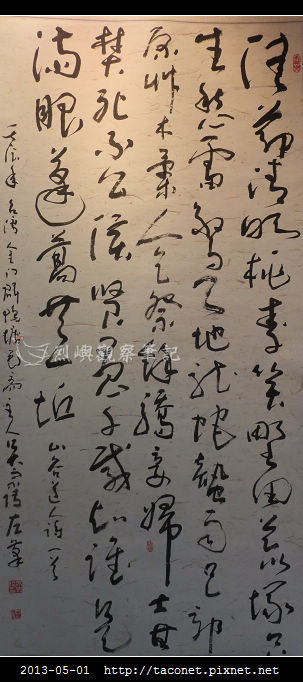 佳節清明桃李笑野田荒塚只
生愁雷驚天地龍蛇蟄雨足郊
原草木柔人乞祭餘驕妾婦士甘
焚死不公侯賢愚千載知誰是
滿眼蓬蒿共一坵 山谷道人詩一首
壬辰年 台灣金門 主人吳 左筆
列嶼觀察筆記
2013-05-01 http://taconet.pixnet.net